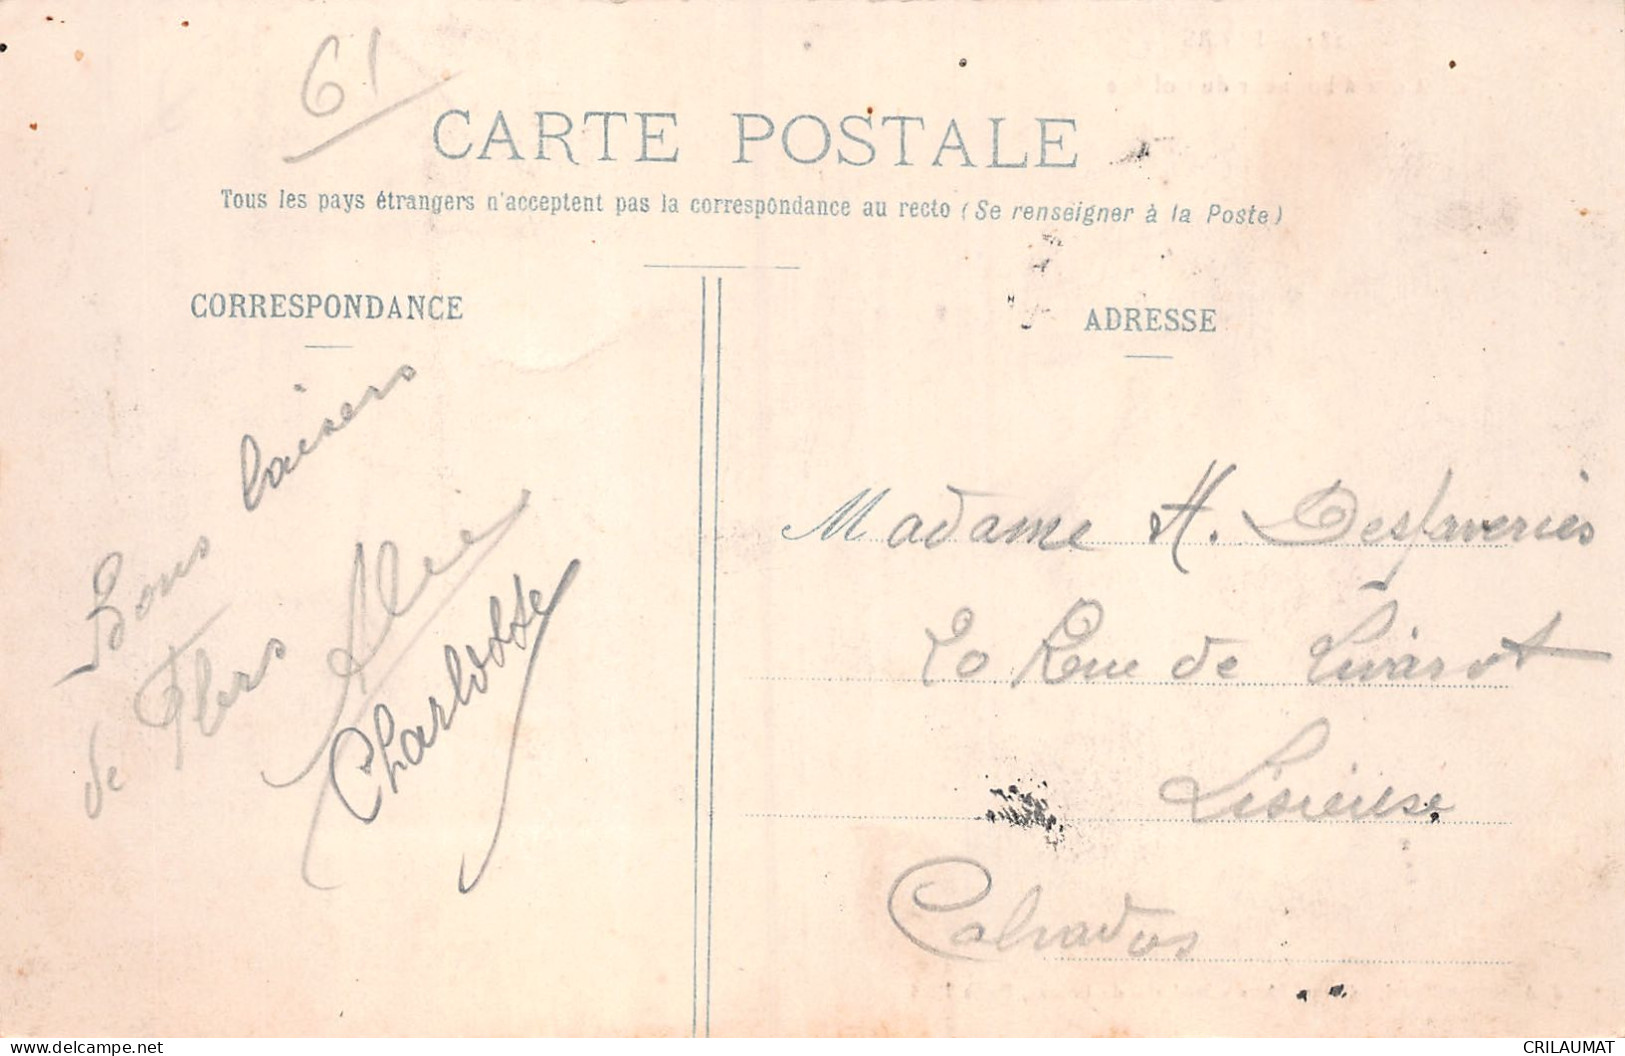 61
CARTE POSTALE
Tous les pays étrangers n'acceptent pas la correspondance au recto (Se renseigner à la Poste)
CORRESPONDANCE
Bons baisers
de Flers
Charlotte
ADRESSE
Madame H. Desfaveries
Rue de Livarot
Lisieux
Calvados
CRILAUMAT